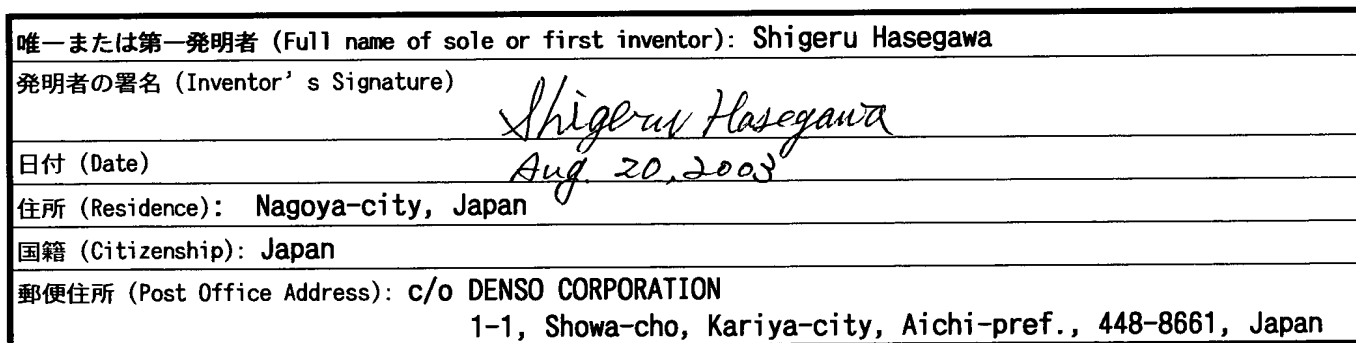 唯一または第一発明者 (Full name of sole or first inventor): Shigeru Hasegawa
発明者の署名 (Inventor's Signature)
Shigeru Hasegawa
日付 (Date) Aug. 20, 2003
住所 (Residence): Nagoya-city, Japan
国籍 (Citizenship): Japan
郵便住所 (Post Office Address): c/o DENSO CORPORATION
1-1, Showa-cho, Kariya-city, Aichi-pref., 448-8661, Japan